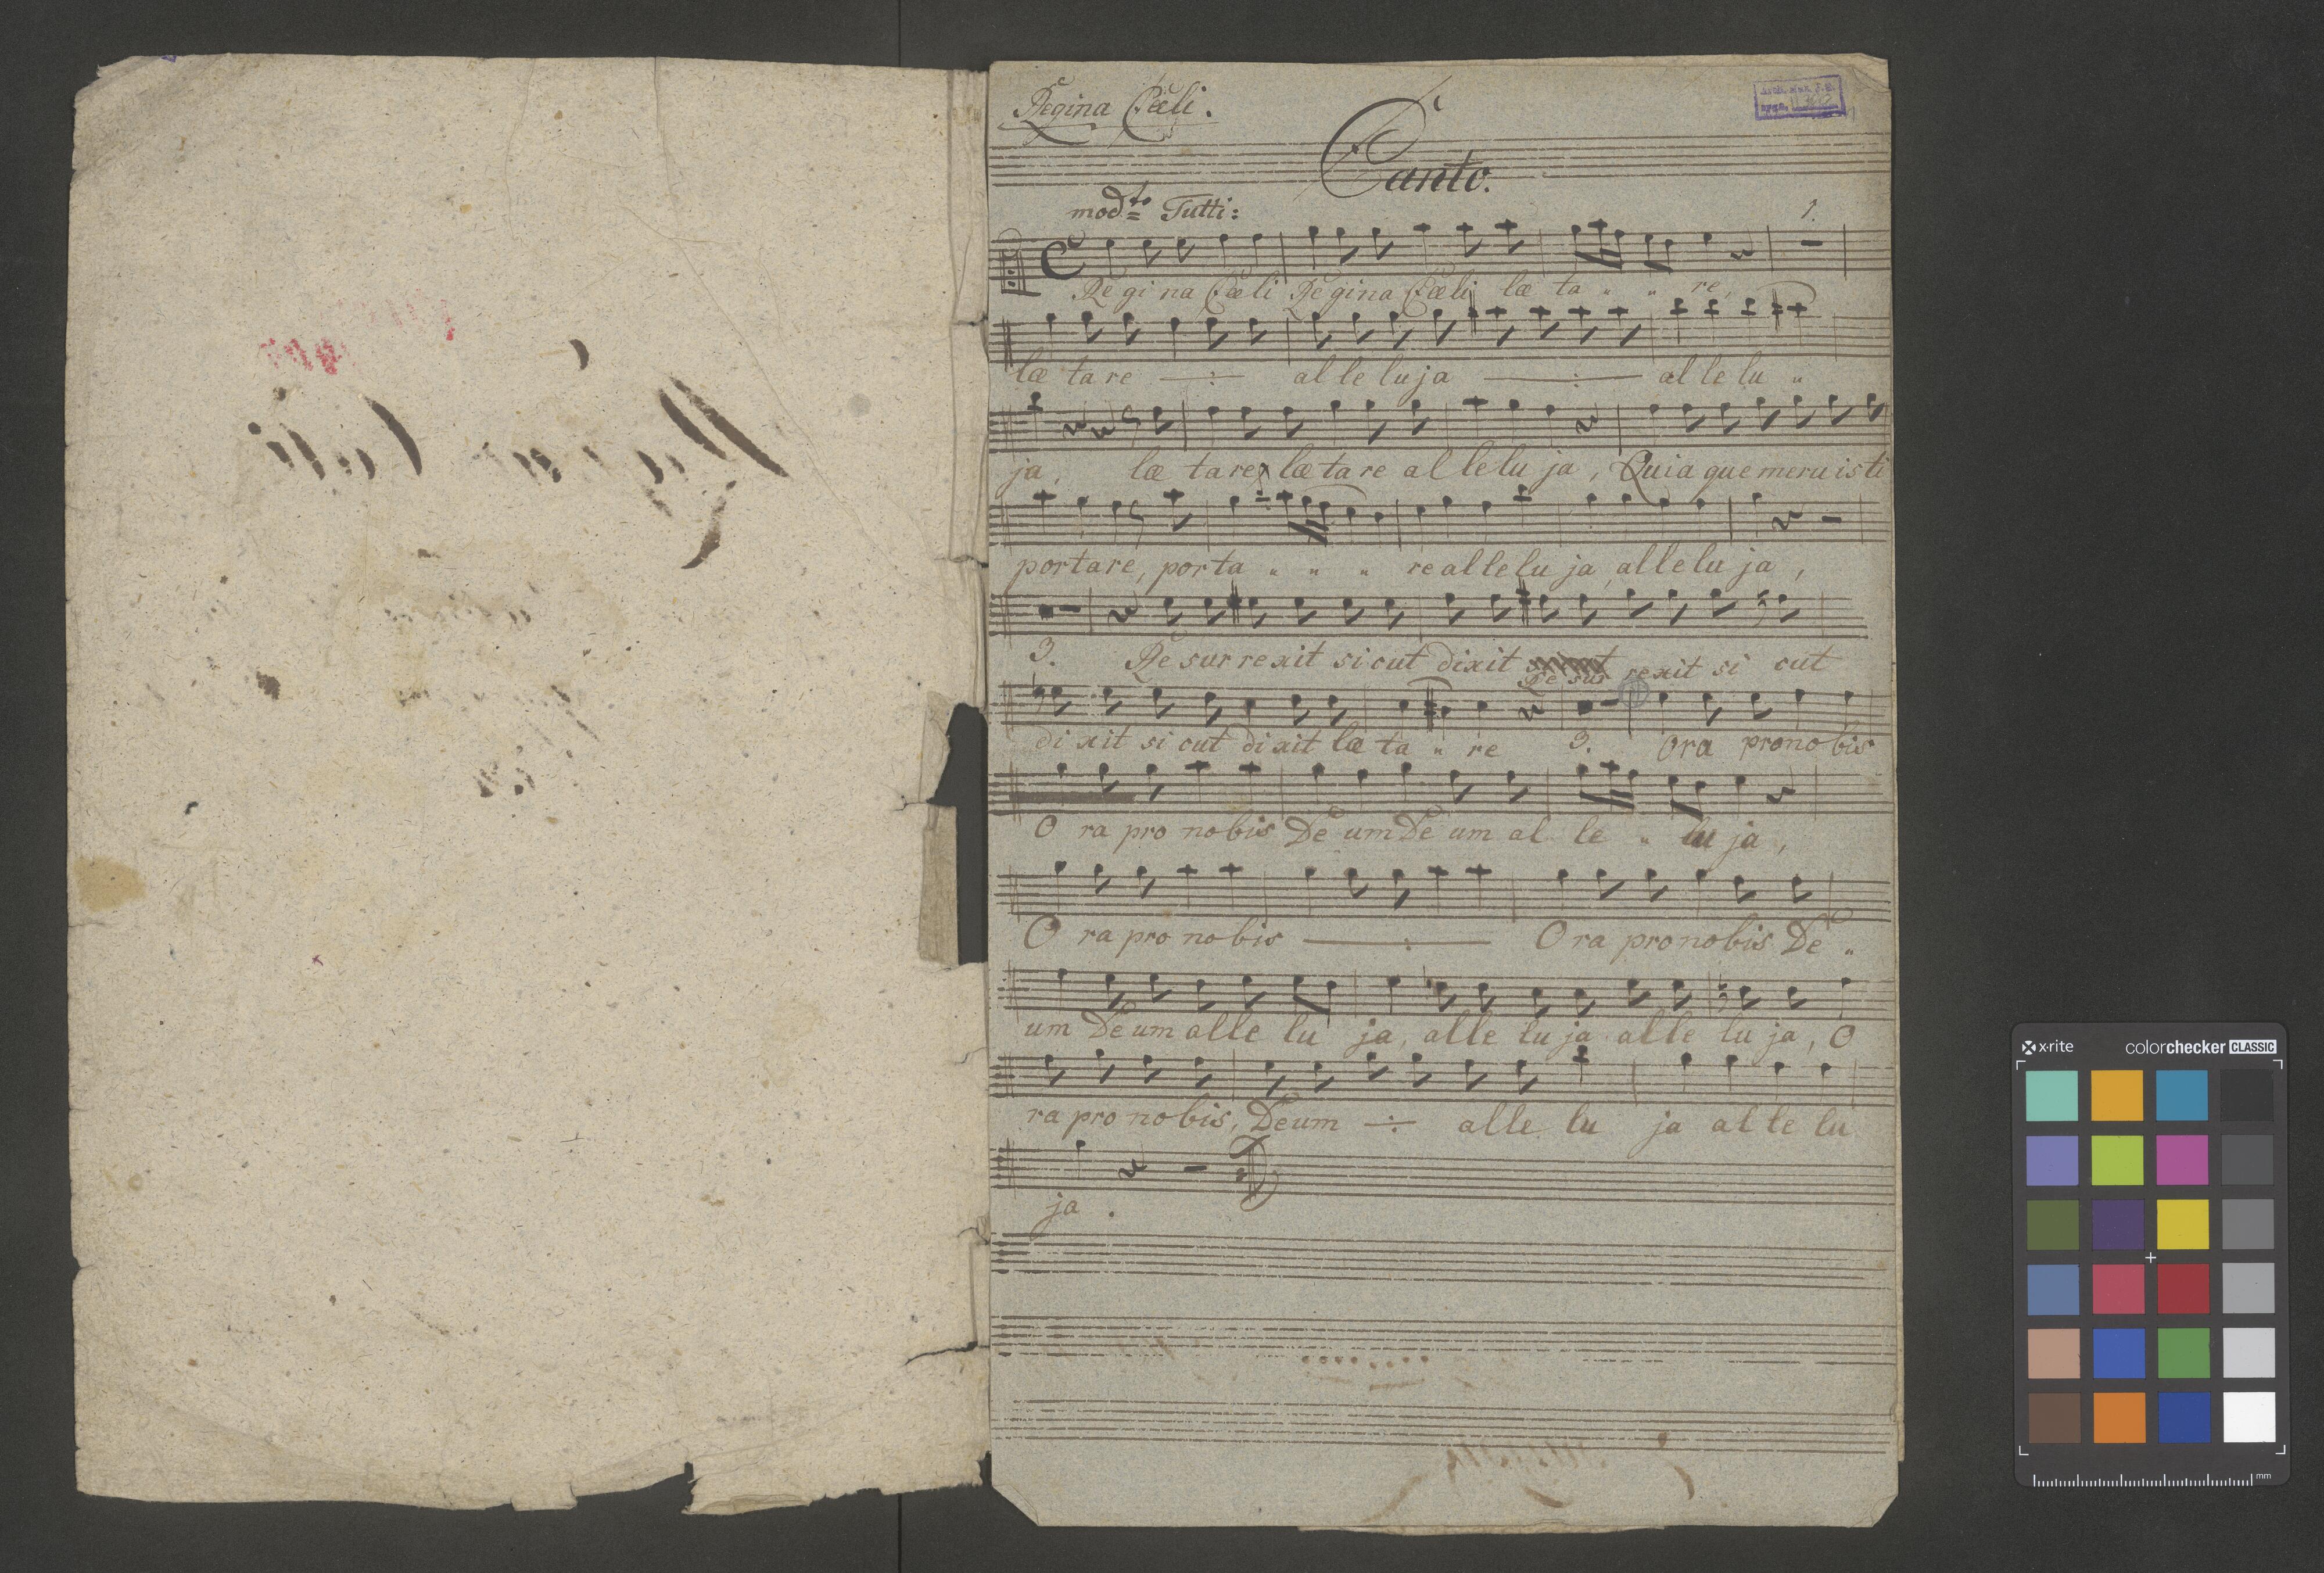 Regina Cæli.
Canto.
mod:to Tutti:
1.
Re gi na Cæ li Re gina Cæli læ ta " " re,
læ ta re —:— al le lu ja —:— al le lu "
ja, læ ta re, læ ta re al le lu ja, Quia que meru is ti
portare, por ta " " " re al le lu ja, al le lu ja,
3. Re sur re xit si cut dixit Re sur rexit si cut
di xit si cut di xit læ ta " re 3. Ora pro no bis
O ra pro no bis De um De um al le " lu ja,
O ra pro no bis —:— O ra pro nobis De "
um De um alle lu ja, alle lu ja alle lu ja, O
ra pro no bis, Deum —:— alle lu ja al le lu
ja.
x-rite colorchecker CLASSIC
mm